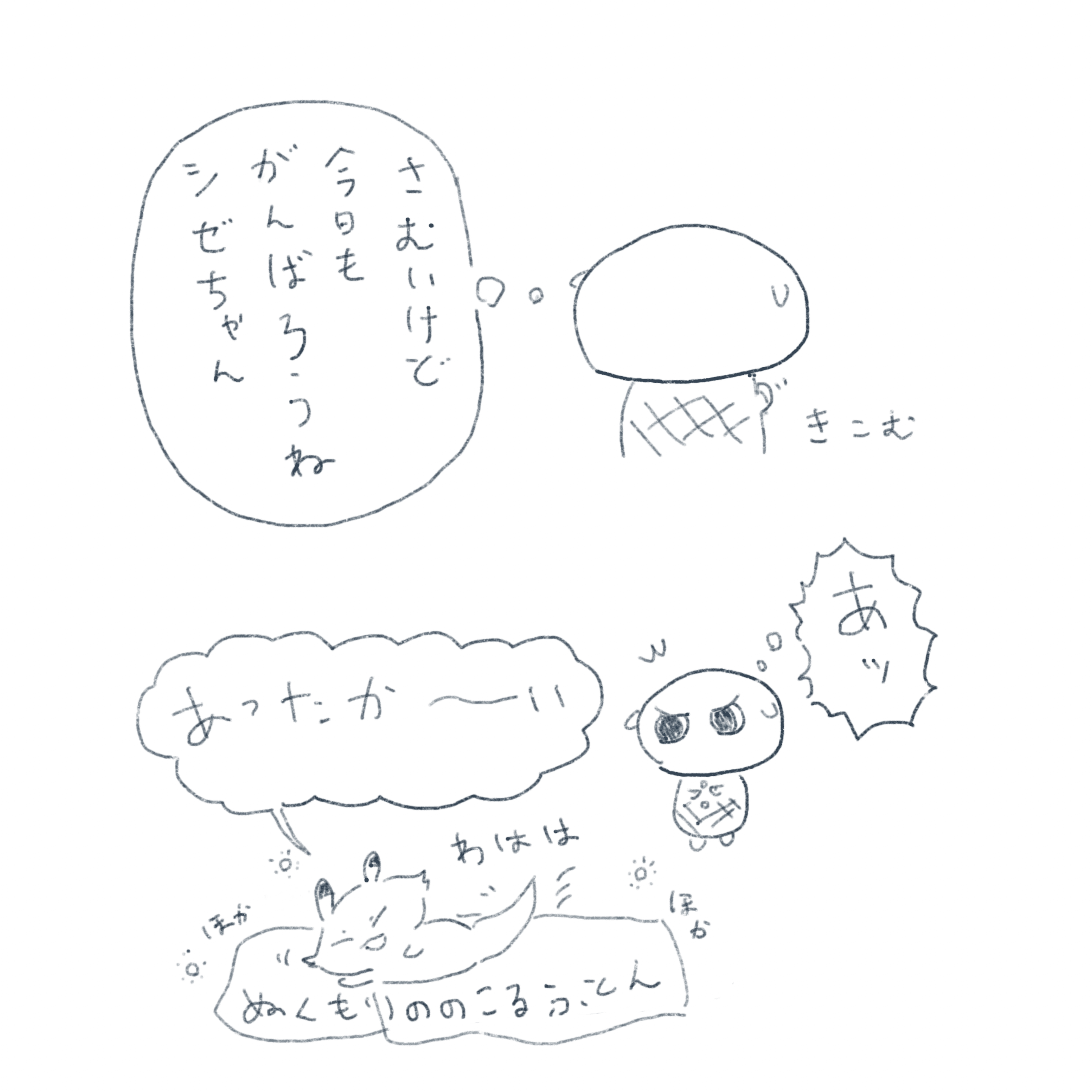 さむいけど
今日も
がんばろうね
シゼちゃん
きこむ
あッ
あったか〜い
わはは
ほか
ほか
ぬくもりののこるふとん